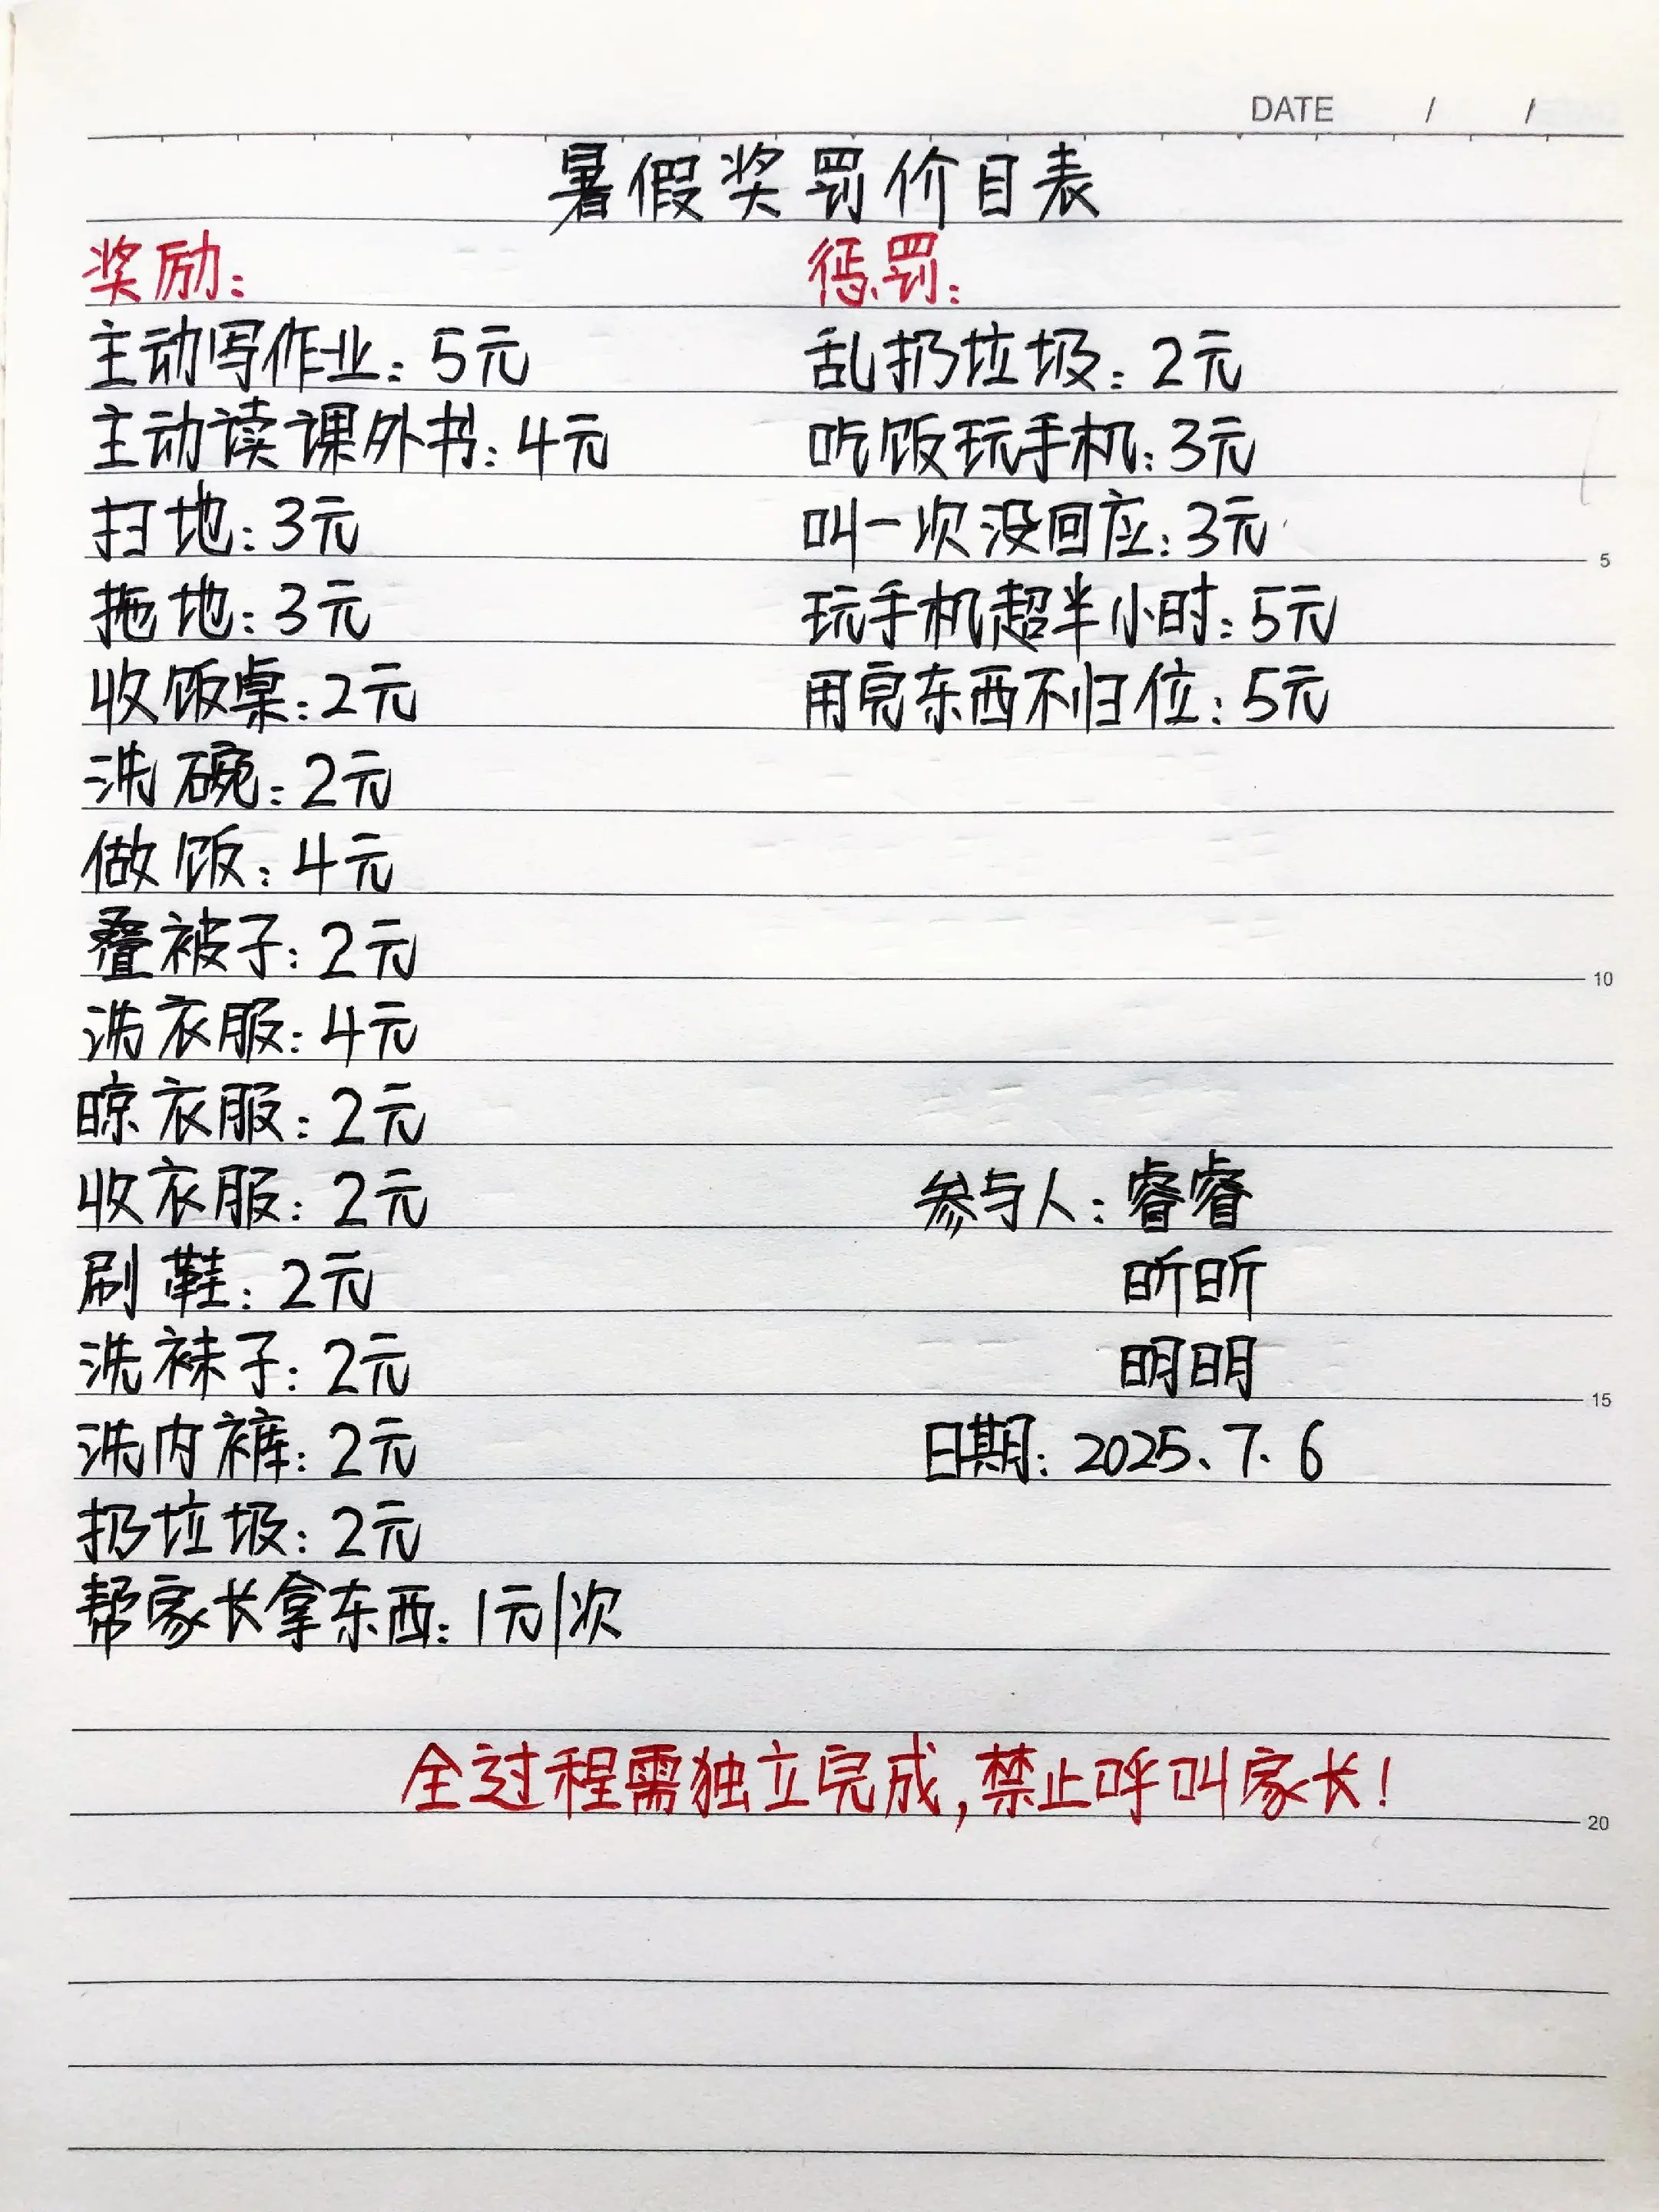 DATE / /
暑假奖罚价目表
奖励:
主动写作业:5元
主动读课外书:4元
扫地:3元
拖地:3元
收饭桌:2元
洗碗:2元
做饭:4元
叠被子:2元
洗衣服:4元
晾衣服:2元
收衣服:2元
刷鞋:2元
洗袜子:2元
洗内裤:2元
扔垃圾:2元
帮家长拿东西:1元/次
惩罚:
乱扔垃圾:2元
吃饭玩手机:3元
叫一次没回应:3元
玩手机超半小时:5元
用完东西不归位:5元
5
10
参与人:睿睿
昕昕
明明
15
日期:2025、7、6
全过程需独立完成,禁止呼叫家长!
20